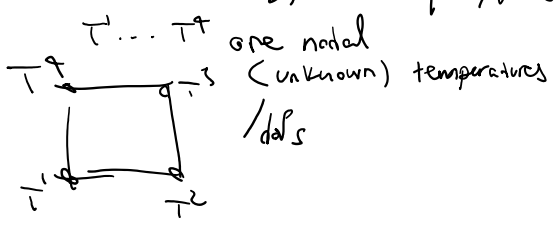 T¹ ... T⁴ are nodal
(unknown) temperatures
/dofs
T⁴
T³
T¹
T²